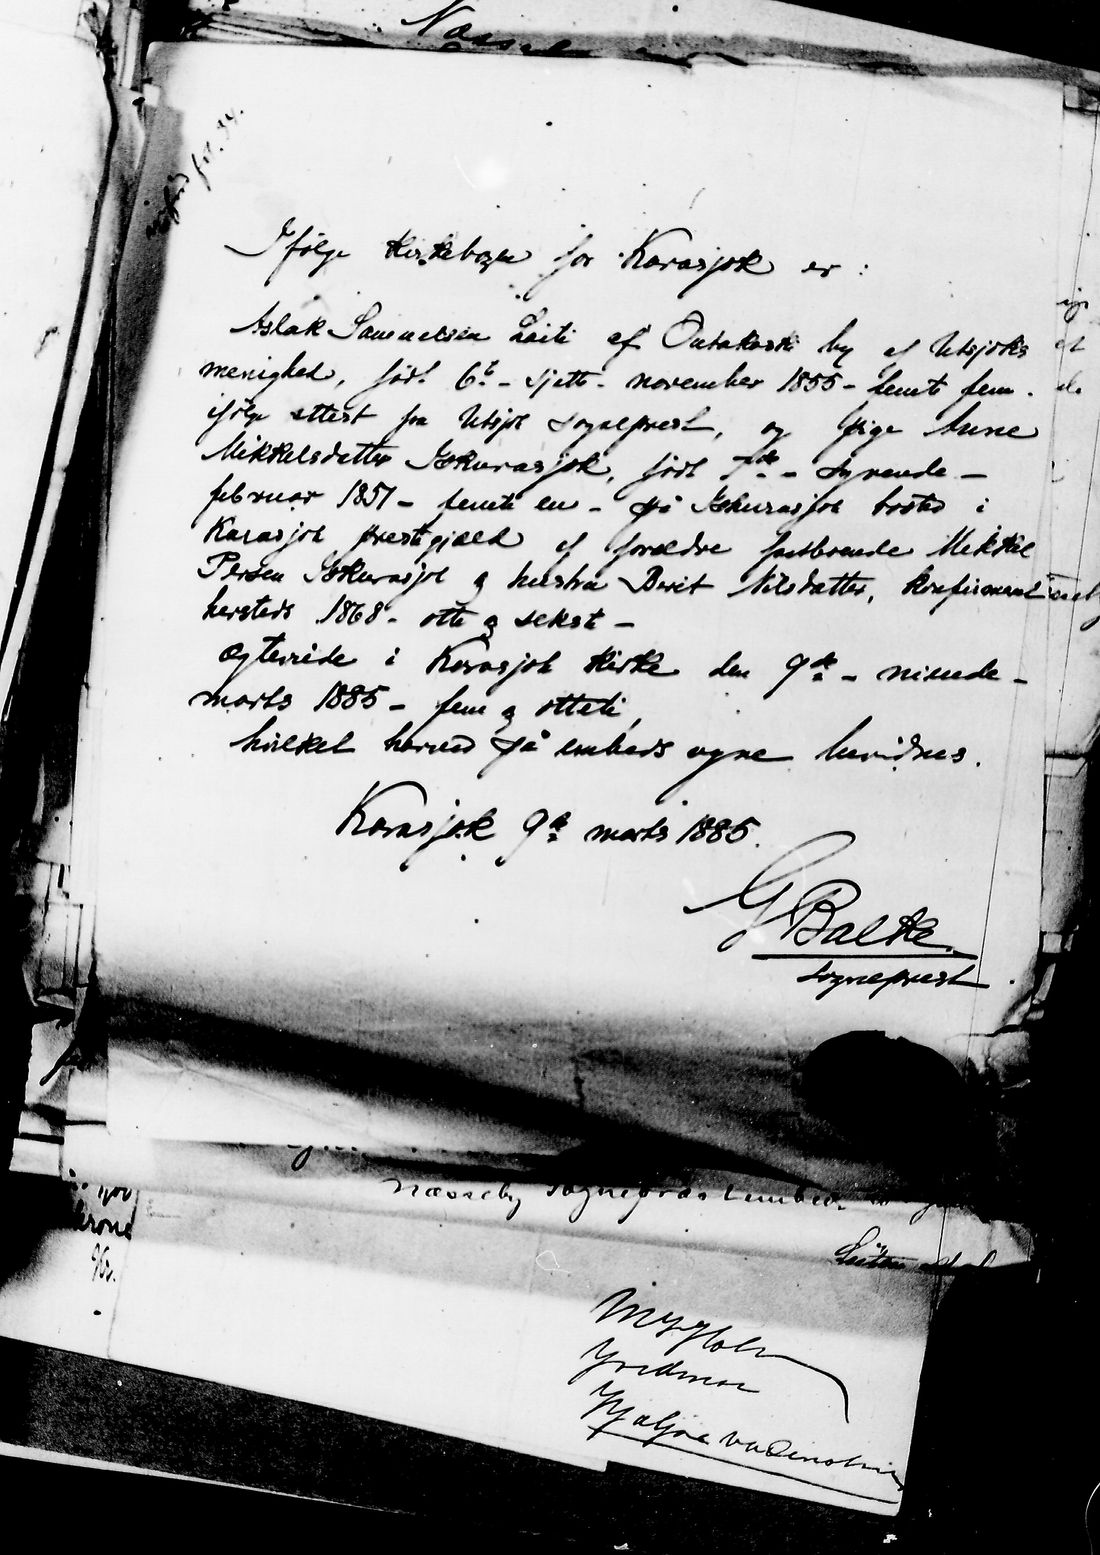 Ifølge kirkebogen for Karasjok er:
Aslak Samuelsen Laiti af Outakoski by af Utsjoks
menighed, født 6te - sjette - november 1855 - femti fem.
ifølge attest fra Utsjok sogneprest, og pige Anne
Mikkelsdatter Iskurasjok, født 7de - syvende -
februar 1851 - femti en - på Iskurasjok bosted i
Karasjok prestegjæld af forældre fastboende Mikkel
Persen Iskurasjok og hustru Berit Nilsdatter, konfirmeret
hersteds 1868 - otte og sekst -
Ægteviede i Karasjok kirke den 9de - niende -
marts 1885 - fem og otteti,
hvilket herved på embeds vegne bevidnes.
Karasjok 9de marts 1885.
G Balke
sogneprest
Næsseby